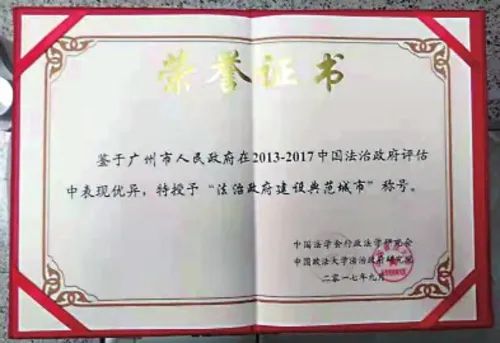 荣誉证书
鉴于广州市人民政府在2013-2017中国法治政府评估
中表现优异，特授予“法治政府建设典范城市”称号。
中国法学会行政法学研究会
中国政法大学法治政府研究院
二〇一七年九月